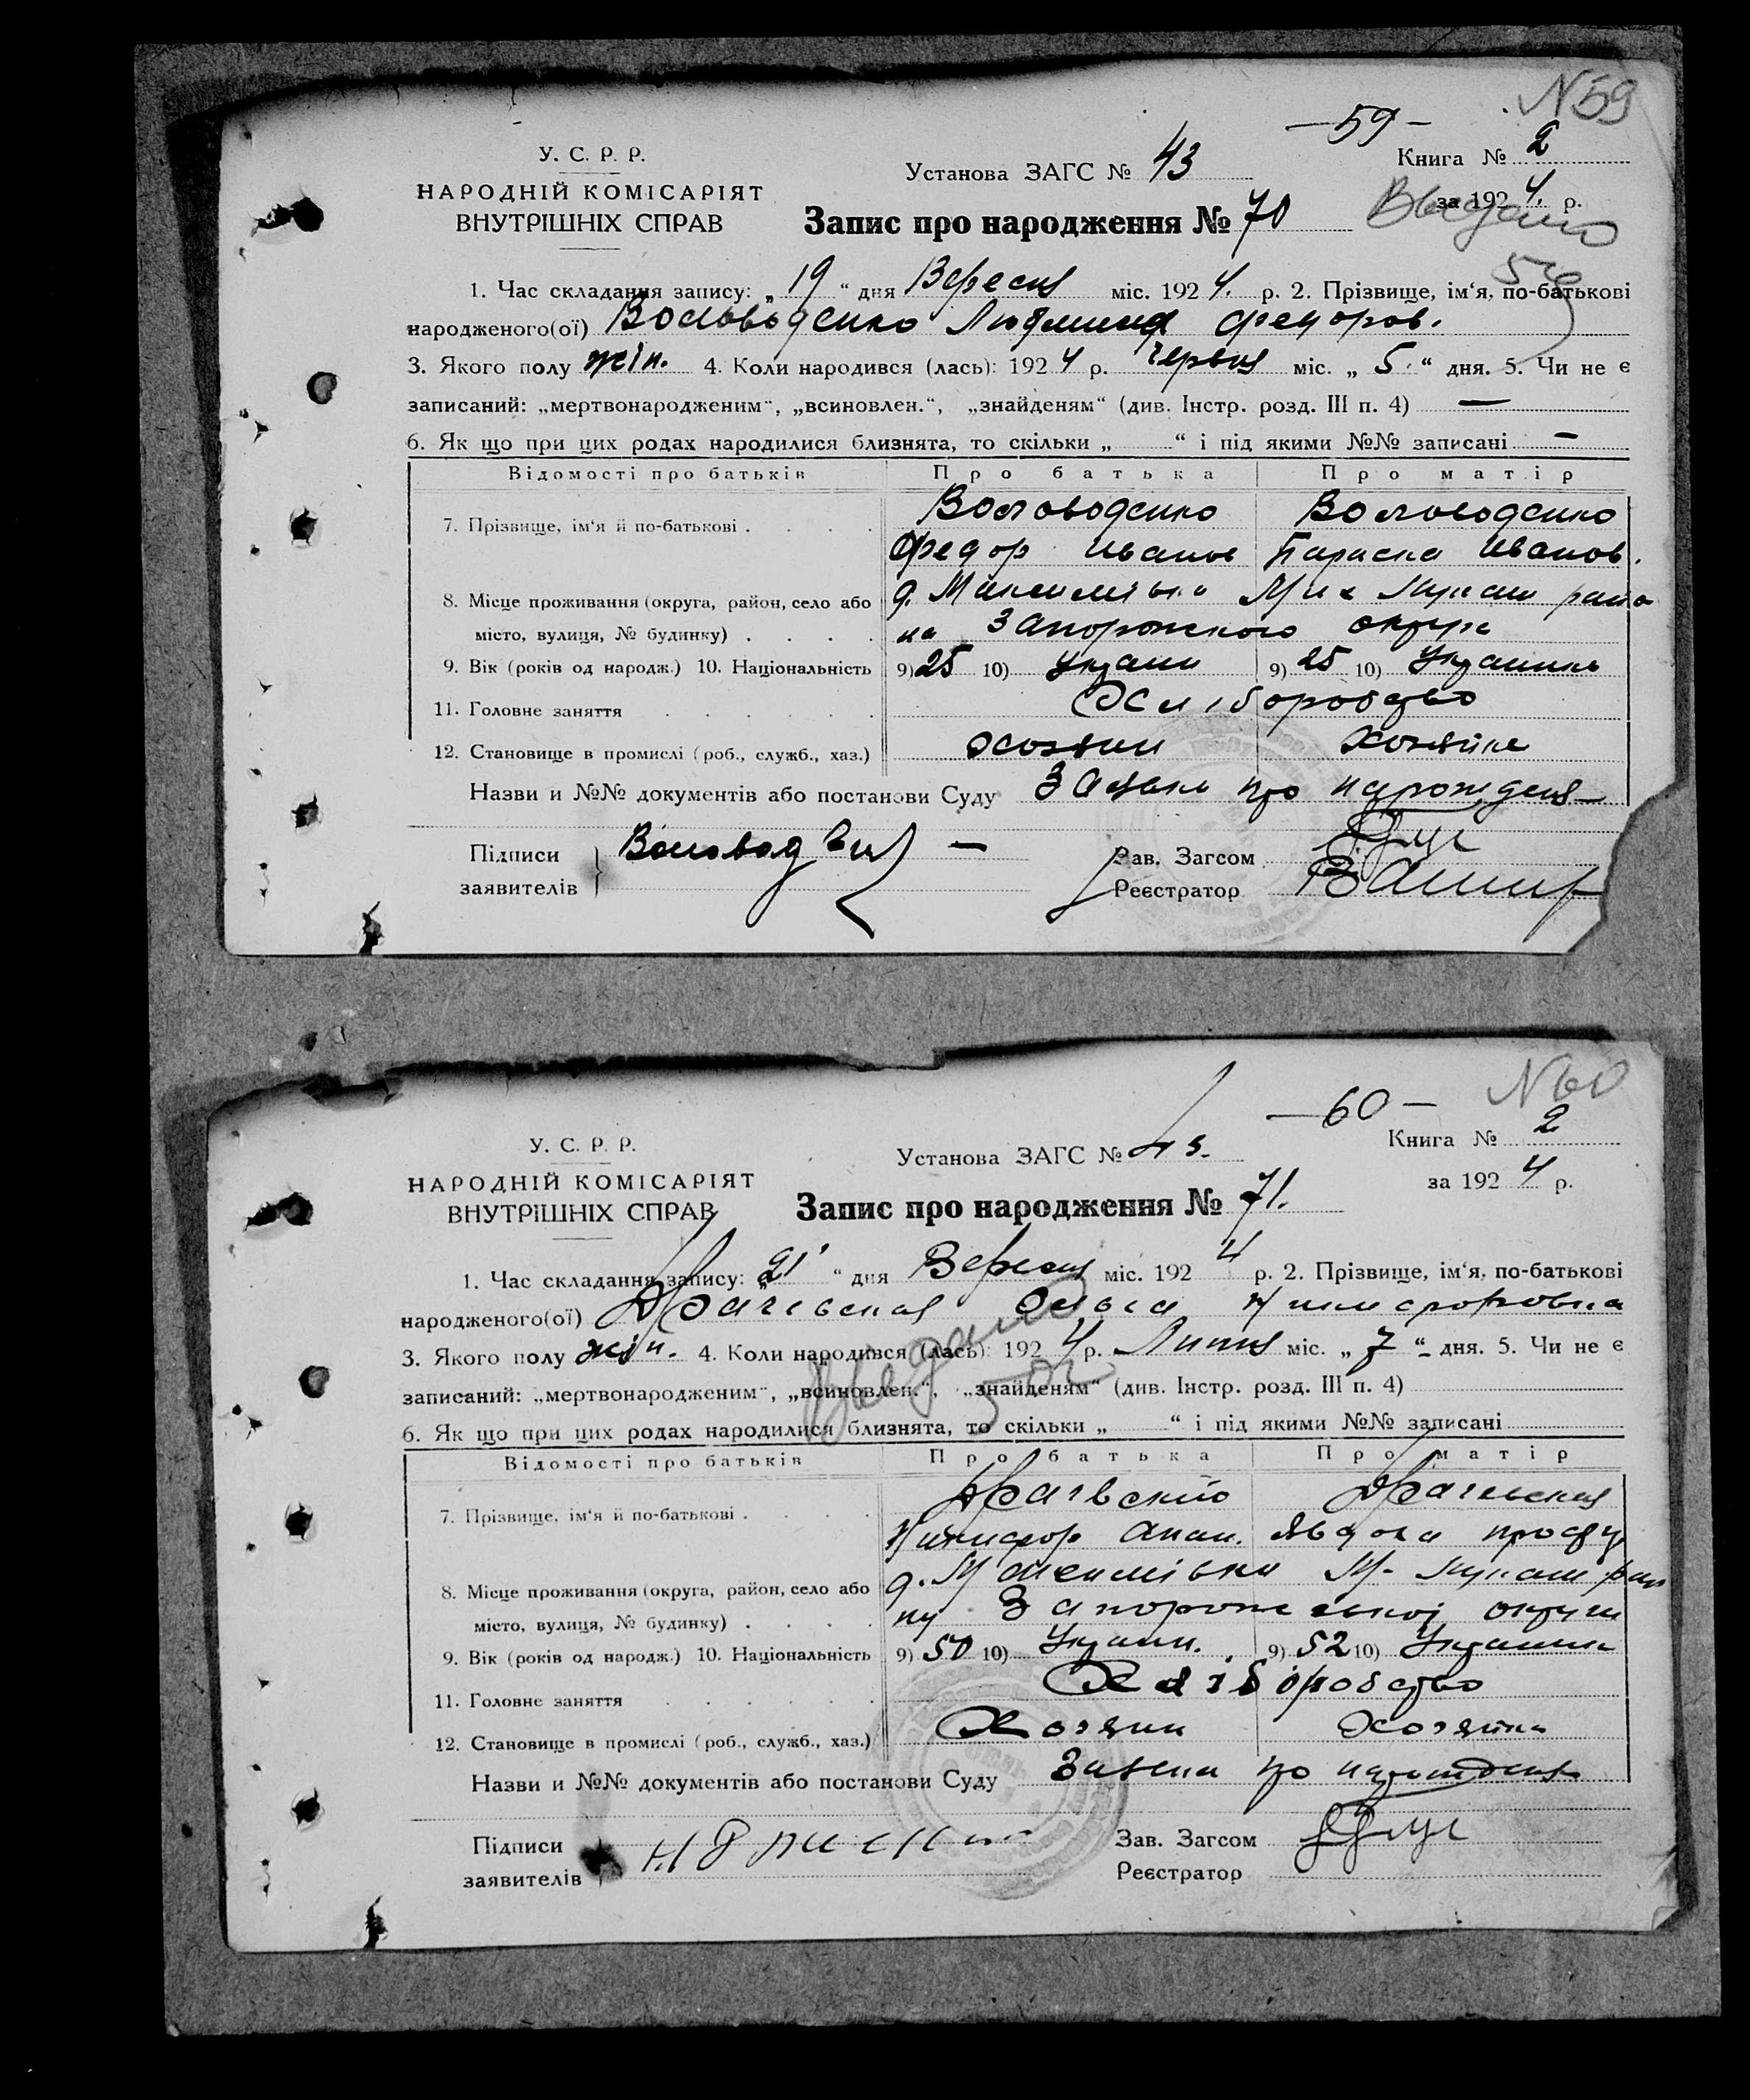 N59
— 59 —
У. С. Р. Р.
Установа ЗАГС № 43
Книга № 2
НАРОДНІЙ КОМІСАРІЯТ
за 1924. р.
ВНУТРІШНІХ СПРАВ
Запис про народження № 70
Введено
1. Час складання запису: „19“ дня Вересня міс. 1924. р. 2. Прізвище, ім'я, по-батькові
народженого(ої) Воловоденко Людмила Федоров.
3. Якого полу жін. 4. Коли народився (лась): 1924 р. Червня міс. „5.“ дня. 5. Чи не є
записаний: „мертвонародженим“, „всиновлен.“, „знайденям“ (див. Інстр. розд. III п. 4) —
6. Як що при цих родах народилися близнята, то скільки „ “ і під якими №№ записані —
Відомості про батьків Про батька Про матір
7. Прізвище, ім'я й по-батькові Воловоденко Воловоденко
Федор Иванов Параска Иванов.
8. Місце проживання (округа, район, село або
місто, вулиця, № будинку) на Запорожского округа
9. Вік (років од народж.) 10. Національність 9) 25 10) Украин 9) 25 10) Украинка
11. Головне заняття Хліборобство
12. Становище в промислі (роб., служб., хаз.) Хозяин Хозяйка
Назви и №№ документів або постанови Суду Заявка про нарождения
Підписи
Зав. Загсом
заявителів
Реєстратор
N60
— 60 —
У. С. Р. Р.
Установа ЗАГС № 43.
Книга № 2
НАРОДНІЙ КОМІСАРІЯТ
за 1924 р.
ВНУТРІШНІХ СПРАВ
Запис про народження № 71.
1. Час складання запису: „21“ дня Вересня міс. 1924 р. 2. Прізвище, ім'я, по-батькові
народженого(ої) Ольга Никифоровна
3. Якого полу жін. 4. Коли народився (лась): 1924 р. Липня міс. „7“ дня. 5. Чи не є
Введено
записаний: „мертвонародженим“, „всиновлен.“, „знайденям“ (див. Інстр. розд. III п. 4)
6. Як що при цих родах народилися близнята, то скільки „ “ і під якими №№ записані
Відомості про батьків Про батька Про матір
7. Прізвище, ім'я й по-батькові
Никифор Афан. Явдоха
8. Місце проживання (округа, район, село або
місто, вулиця, № будинку) ну Запорожської округи
9. Вік (років од народж.) 10. Національність 9) 50 10) Украин. 9) 52 10) Украинка
11. Головне заняття Хліборобство
12. Становище в промислі (роб., служб., хаз.) Хозяин Хозяйка
Назви и №№ документів або постанови Суду Заявка про нарождения
Підписи
Зав. Загсом
заявителів
Реєстратор